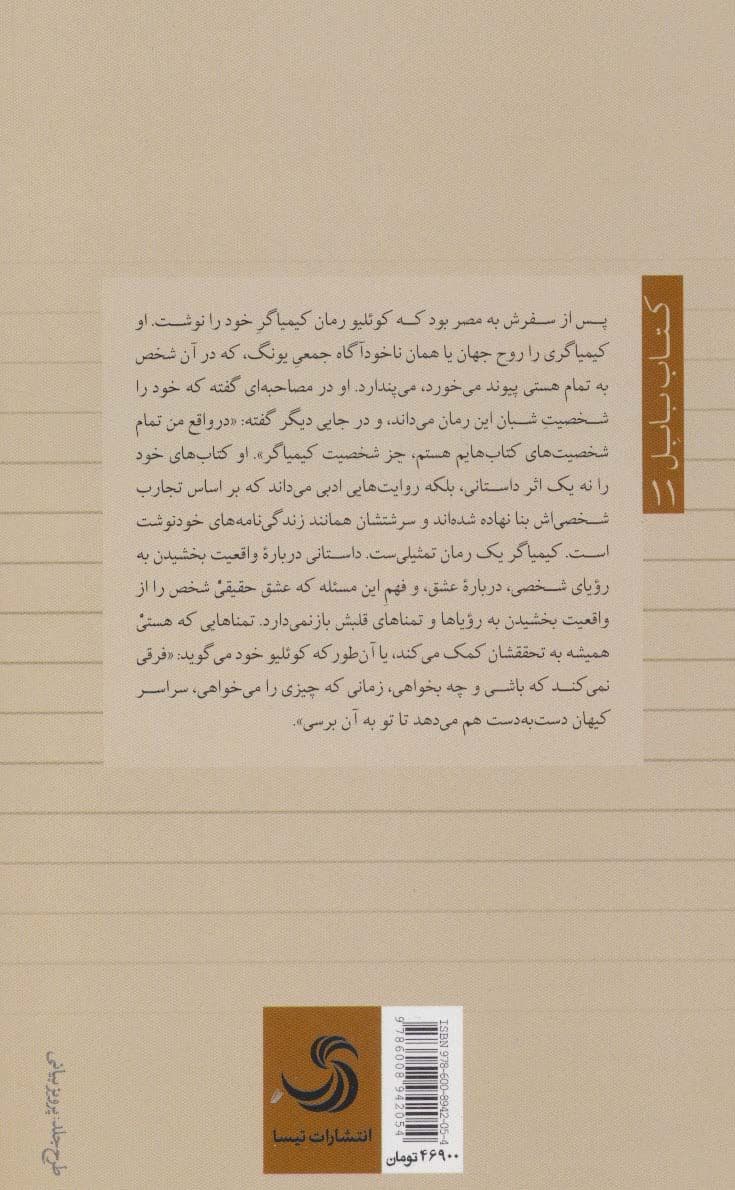 کتاب بابل
پس از سفرش به مصر بود که کوئلیو رمان کیمیاگرِ خود را نوشت. او
کیمیاگری را روح جهان یا همان ناخودآگاه جمعیِ یونگ، که در آن شخص
به تمام هستی پیوند می‌خورد، می‌پندارد. او در مصاحبه‌ای گفته که خود را
شخصیتِ شبان این رمان می‌داند، و در جایی دیگر گفته: «درواقع من تمام
شخصیت‌های کتاب‌هایم هستم، جز شخصیت کیمیاگر». او کتاب‌های خود
را نه یک اثر داستانی، بلکه روایت‌هایی ادبی می‌داند که بر اساس تجارب
شخصی‌اش بنا نهاده شده‌اند و سرشتشان همانند زندگی‌نامه‌های خودنوشت
است. کیمیاگر یک رمان تمثیلی‌ست. داستانی دربارهٔ واقعیت بخشیدن به
رؤیای شخصی، دربارهٔ عشق، و فهمِ این مسئله که عشق حقیقیْ شخص را از
واقعیت بخشیدن به رؤیاها و تمناهای قلبش بازنمی‌دارد. تمناهایی که هستیْ
همیشه به تحققشان کمک می‌کند، یا آن‌طور که کوئلیو خود می‌گوید: «فرقی
نمی‌کند که باشی و چه بخواهی، زمانی که چیزی را می‌خواهی، سراسر
کیهان دست‌به‌دست هم می‌دهد تا تو به آن برسی».
انتشارات تیسا
ISBN 978-600-8942-05-4
9 786008 942054
۴۶۹۰۰ تومان
طرح جلد: پرویز بیانی